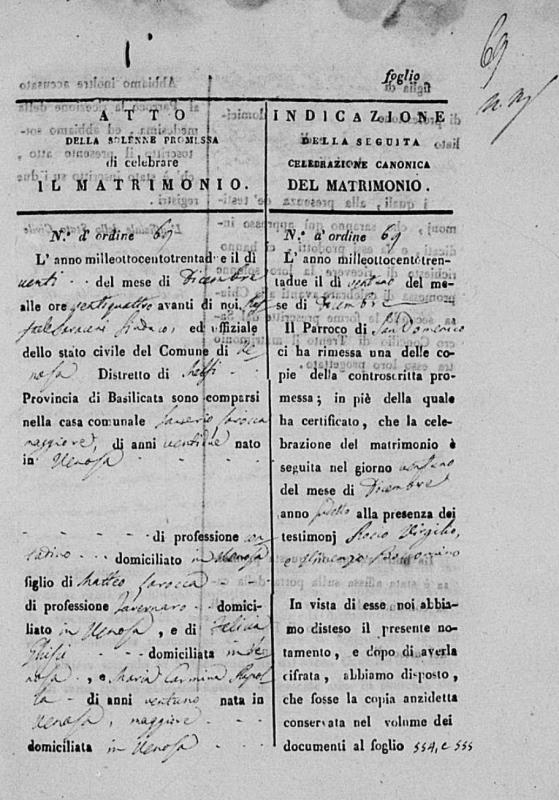 foglio
69
ATTO
DELLA SOLENNE PROMESSA
di celebrare
IL MATRIMONIO.
N.° d'ordine 69
L'anno milleottocentotrentadue il dì
venti del mese di Dicembre
alle ore ventiquattro avanti di noi
Sindaco, ed uffiziale
dello stato civile del Comune di Ve-
nosa Distretto di Melfi
Provincia di Basilicata sono comparsi
nella casa comunale Saverio Larocca
maggiore, di anni ventidue nato
in Venosa
di professione con-
tadino domiciliato in Venosa
figlio di Matteo Larocca
di professione Tavernaro domici-
liato in Venosa, e di Felicia
domiciliata in Ve-
nosa, e Maria Carmina Rapol-
la di anni ventuno nata in
Venosa, maggiore
domiciliata in Venosa
INDICAZIONE
DELLA SEGUITA
CELEBRAZIONE CANONICA
DEL MATRIMONIO.
N.° d'ordine 69
L'anno milleottocentotren-
tadue il dì ventuno del me-
se di Dicembre
Il Parroco di San Domenico
ci ha rimessa una delle co-
pie della controscritta pro-
messa; in piè della quale
ha certificato, che la cele-
brazione del matrimonio è
seguita nel giorno ventuno
del mese di Dicembre
anno sudetto alla presenza dei
testimonj Rocco Virgilio,
e Vincenzo
In vista di esse noi abbia-
mo disteso il presente no-
tamento, e dopo di averla
cifrata, abbiamo disposto,
che fosse la copia anzidetta
conservata nel volume dei
documenti al foglio 554, e 555